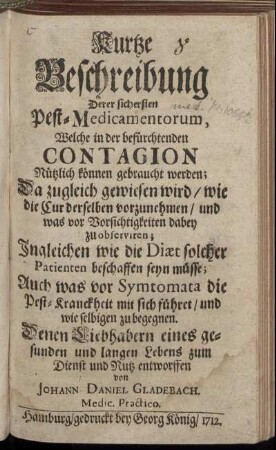 Kurtze
Beschreibung
Derer sichersten
Pest-Medicamentorum,
Welche in der befürchtenden
CONTAGION
Nützlich können gebraucht werden;
Da zugleich gewiesen wird / wie
die Cur derselben vorzunehmen / und
was vor Vorsichtigkeiten dabey
zu observiren;
Ingleichen wie die Diæt solcher
Patienten beschaffen seyn müsse;
Auch was vor Symtomata die
Pest-Kranckheit mit sich führet / und
wie selbigen zu begegnen.
Denen Liebhabern eines ge-
sunden und langen Lebens zum
Dienst und Nutz entworffen
von
JOHANN DANIEL GLADEBACH.
Medic. Practico.
Hamburg / gedruckt bey Georg König / 1712.